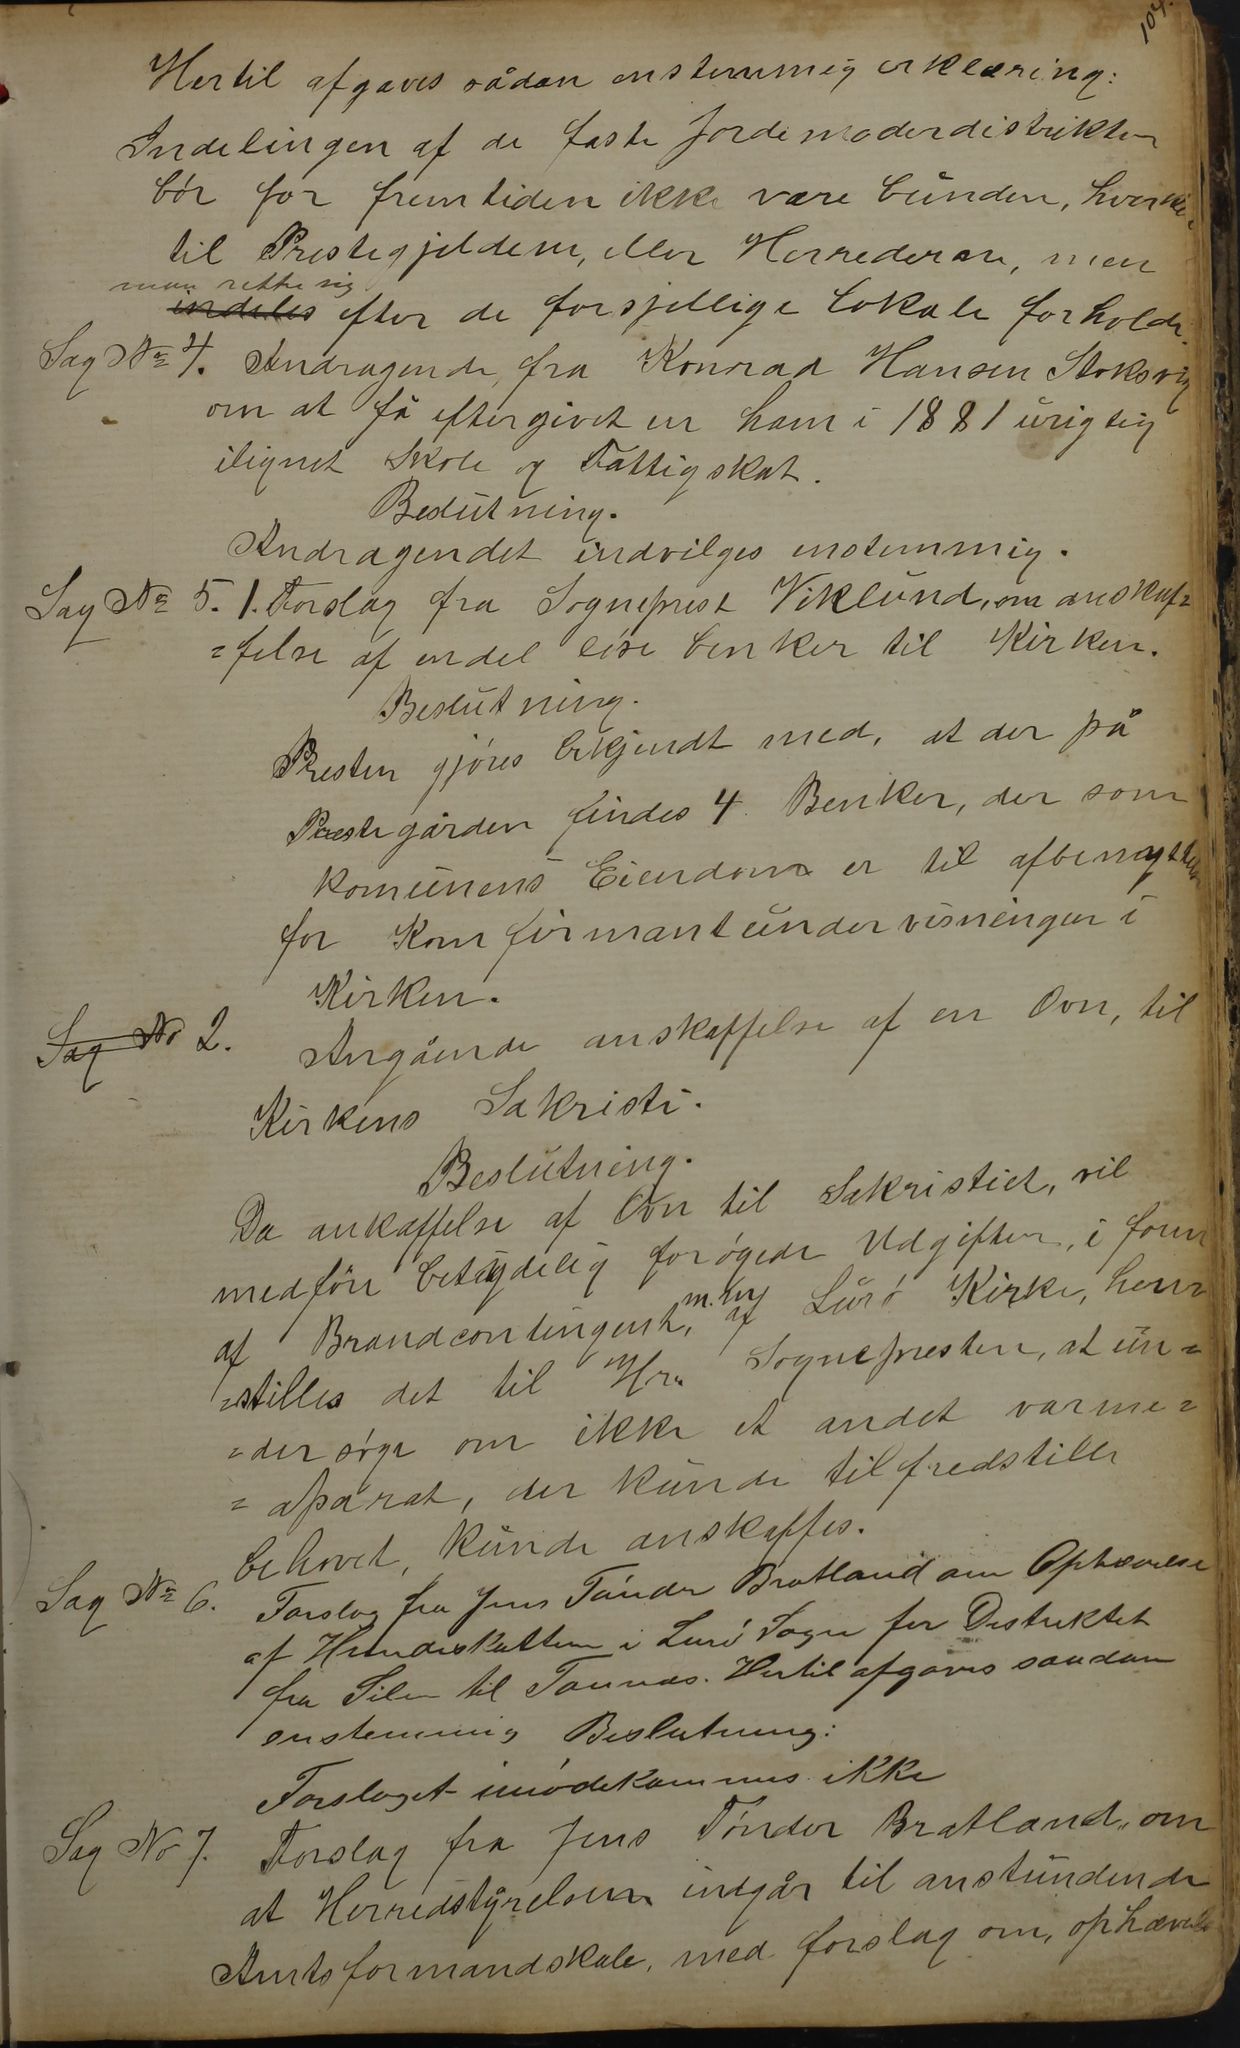 104.
Hertil afgaves sådan enstemmig erklæring:
Indelingen af de faste Jordemoderdistrikter
bör for fremtiden ikke være bunden, hverken
til Prestegjeldene, eller Herrederne, men
man rette sig
indeles efter de forsjellige lokale forholde.
Sag No 4. Andragende, fra Konrad Hansen Stoksvig
om at få eftergivet en ham i 1881 urigtig
ilignet Skole og Fattigskat.
Beslutning.
Andragendet indvilges enstemmig.
Sag No 5. 1. Forslag fra Sogneprest Viklund, om anskaf=
=felse af endel löse benker til Kirken.
Beslutning.
Presten gjöres bekjendt med, at der på
Prestegården findes 4 Benker, der som
komunens Eiendom er til afbenyttelse
for Komfirmantundervisningen i
Kirken.
Sag No 2. Angående anskaffelse af en Ovn, til
Kirkens Sakristi.
Beslutning.
Da ankaffelse af Ovn til Sakristiet, vil
medföre betydelig forøgede Udgifter, i form
af Brandcontingent, m. m. af Lurö Kirke, hen=
=stilles det til Hr. Sognepresten, at un=
=dersöge om ikke et andet varme=
=aparat, der kunde tilfredstille
behovet, kunde anskaffes.
Sag No 6. Forslag fra Jens Tönder Bratland om Ophævelse
af Hundeskatten i Lurö Sogn for Distriktet
fra Silen til Tonnes. Hertil afgaves saadan
enstemmig Beslutning:
Forslaget imödekommes ikke
Sag No 7. Forslag fra Jens Tönder Bratland, om
at Herredstyrelsen indgår til anstundende
Amtsformandskab, med forslag om, ophævelse